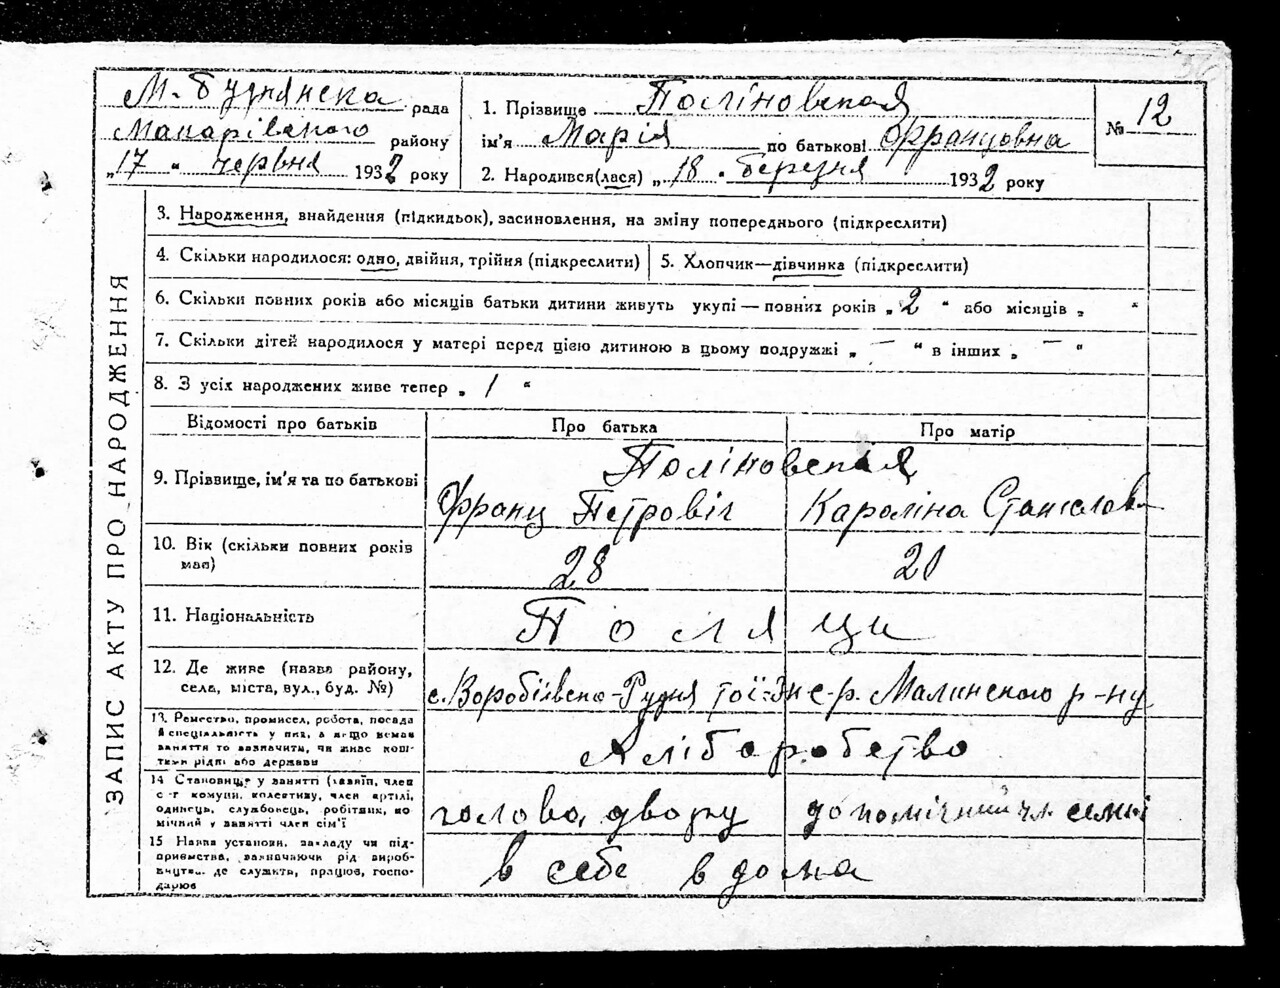 М-Бурянска рада
Макарівского району
„17 " червня 1932 року
1. Прізвище Поліновская
ім'я Марія по батькові Францовна
2. Народився(лася) „18 . березня 1932 року
№ 12
ЗАПИС АКТУ ПРО НАРОДЖЕННЯ
3. Народження, внайдення (підкидьок), засиновлення, на зміну попереднього (підкреслити)
4. Скільки народилося: одно, двійня, трійня (підкреслити)
5. Хлопчик—дівчинка (підкреслити)
6. Скільки повних років або місяців батьки дитини живуть укупі — повних років „ 2 " або місяців „ "
7. Скільки дітей народилося у матері перед цією дитиною в цьому подружжі „ — " в інших „ — "
8. З усіх народжених живе тепер „ 1 "
Відомості про батьків
Про батька
Про матір
9. Прізвище, ім'я та по батькові
Поліновская
Франц Петровіч
Кароліна
10. Вік (скільки повних років має)
28
20
11. Національність
Поляци
12. Де живе (назва району,
села, міста, вул., буд. №)
с. Воробіївено-Рудня Малинского р-ну
13. Ремество, промисел, робота, посада
й спеціальність у них, а якщо немав
заняття то зазначити, чи живе кош-
тами рідні або держави
хліборобство
14 Становище у занятті (хазяїн, член
с-г комуни, колективу, член артілі,
одинець, службовець, робітник, по
мічний у занятті член сім'ї
голова двору
допомічний чл. семьі
15 Назва установи, закладу чи під-
приємства, зазначаючи рід вироб-
ництва, де служить, працює, госпо-
дарює
в себе в дома